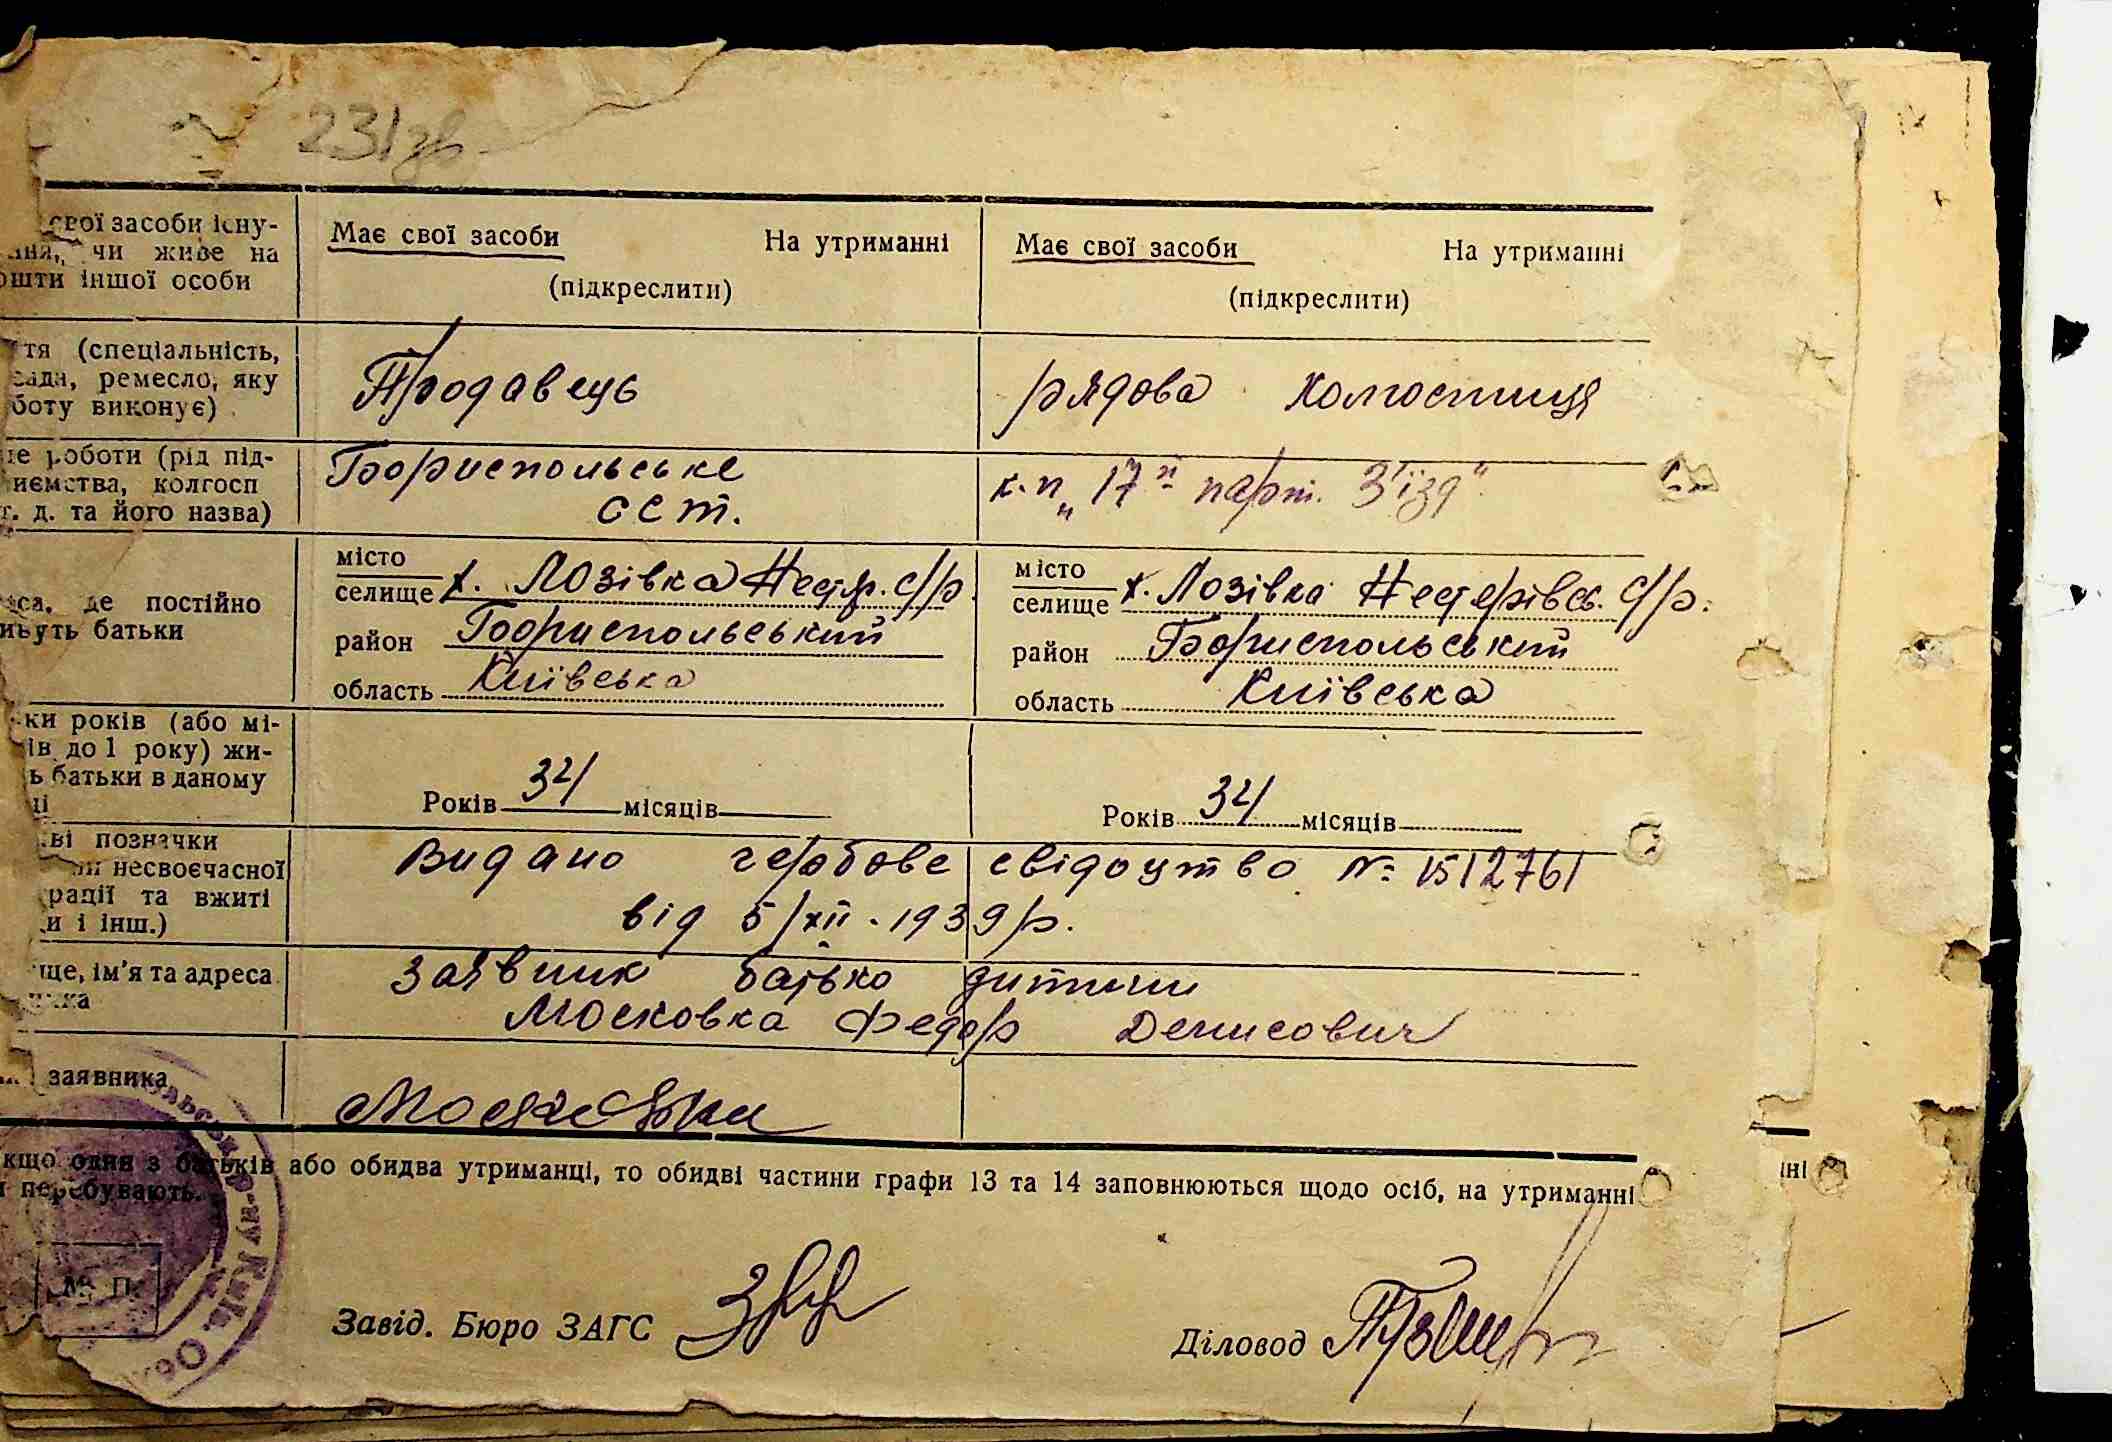 231зв
свої засоби існу-
ння, чи живе на
ошти іншої особи
Має свої засоби На утриманні Має свої засоби На утриманні
(підкреслити) (підкреслити)
ття (спеціальність,
сада, ремесло, яку
боту виконує)
Продавець рядова колгоспниця
це роботи (рід під-
иємства, колгосп
т. д. та його назва)
Бориспольське к.п. „17й парт. З'їзд"
ССТ.
са, де постійно
ивуть батьки
місто х. Лозівка Нестер. с/р. місто х. Лозівка Нестерівсь. С/р.
селище селище
район Бориспольський район Бориспольський
область Київська область Київська
ки років (або мі-
ів до 1 року) жи-
ь батьки в даному
ці
Років 34 місяців Років 34 місяців
ві позначки
ри несвоєчасної
рації та вжиті
и і інш.)
Видано гербове свідоцтво № 1512761
від 5/XII-1939р.
ще, ім'я та адреса
ника
Заявник батько дитини
Московка Федор Денисович
заявника
Московка
кщо один з батьків або обидва утриманці, то обидві частини графи 13 та 14 заповнюються щодо осіб, на утриманні
и перебувають.
М. П.
Завід. Бюро ЗАГС
Діловод
ні